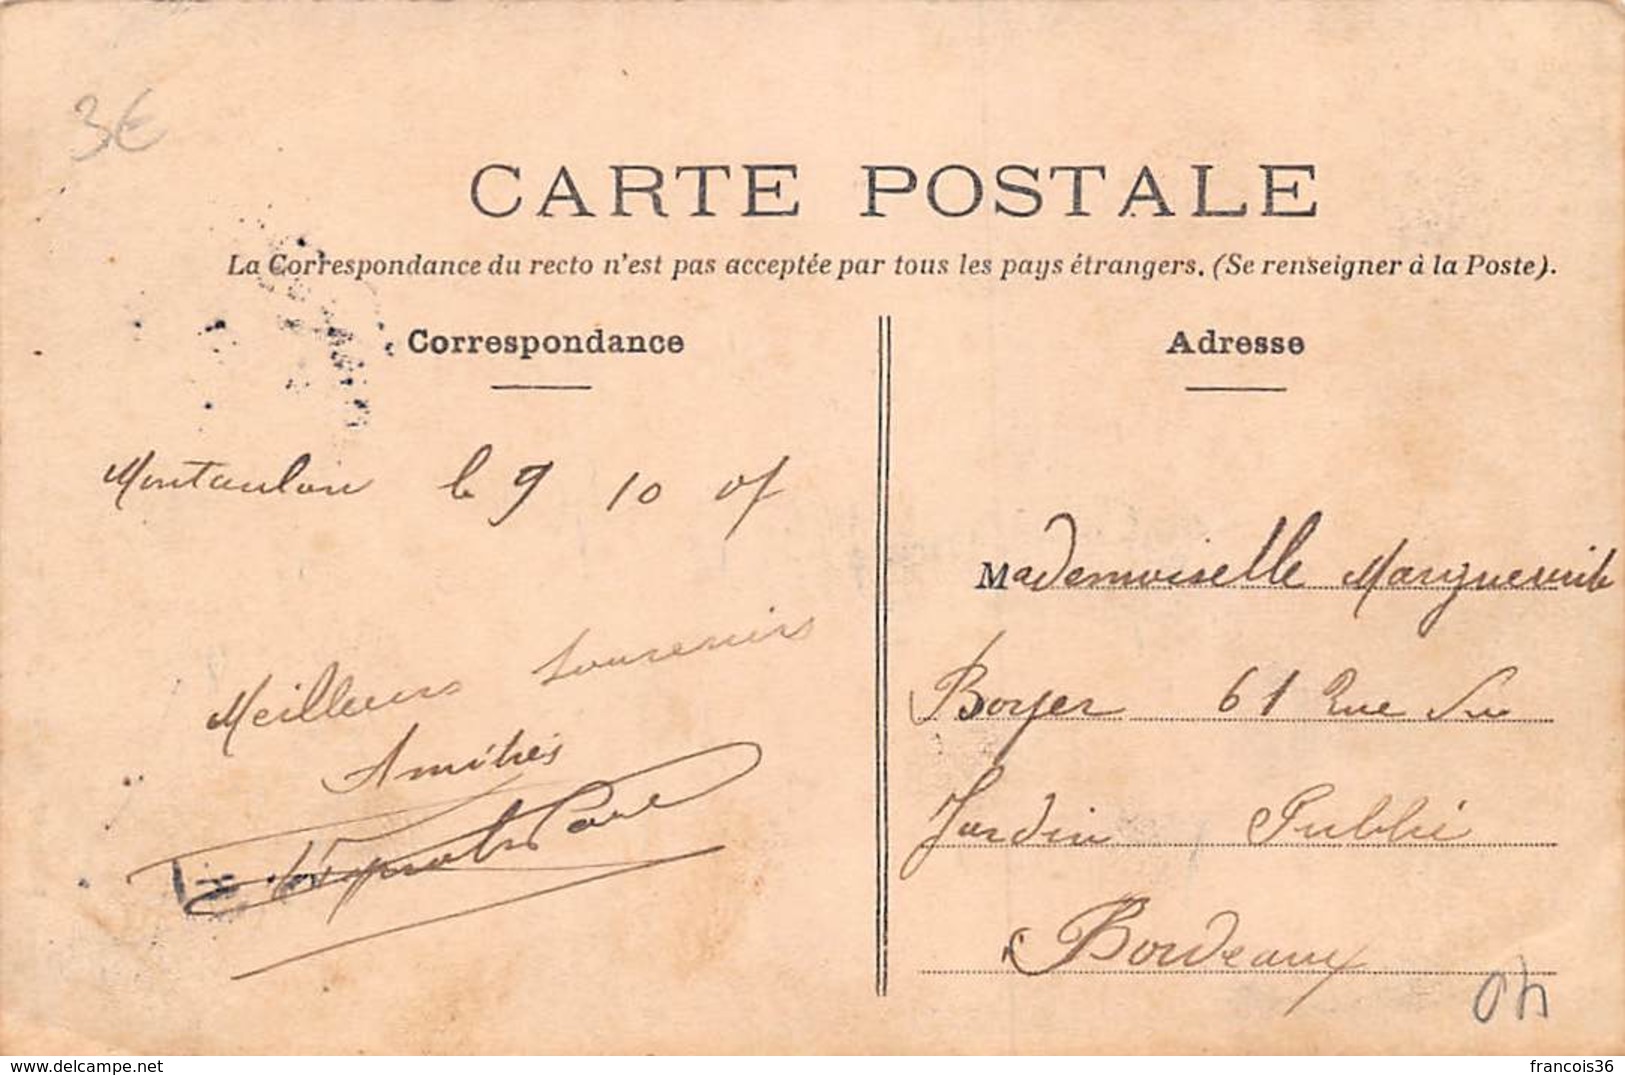 3€
CARTE POSTALE
La Correspondance du recto n'est pas acceptée par tous les pays étrangers. (Se renseigner à la Poste).
Correspondance
Adresse
le 9 10 07
Mademoiselle Marguerite
Boyer 61 Rue du
Jardin Public
Bordeaux
Meilleurs Souvenirs
Amitiés
40
www.delcampe.net
francois36